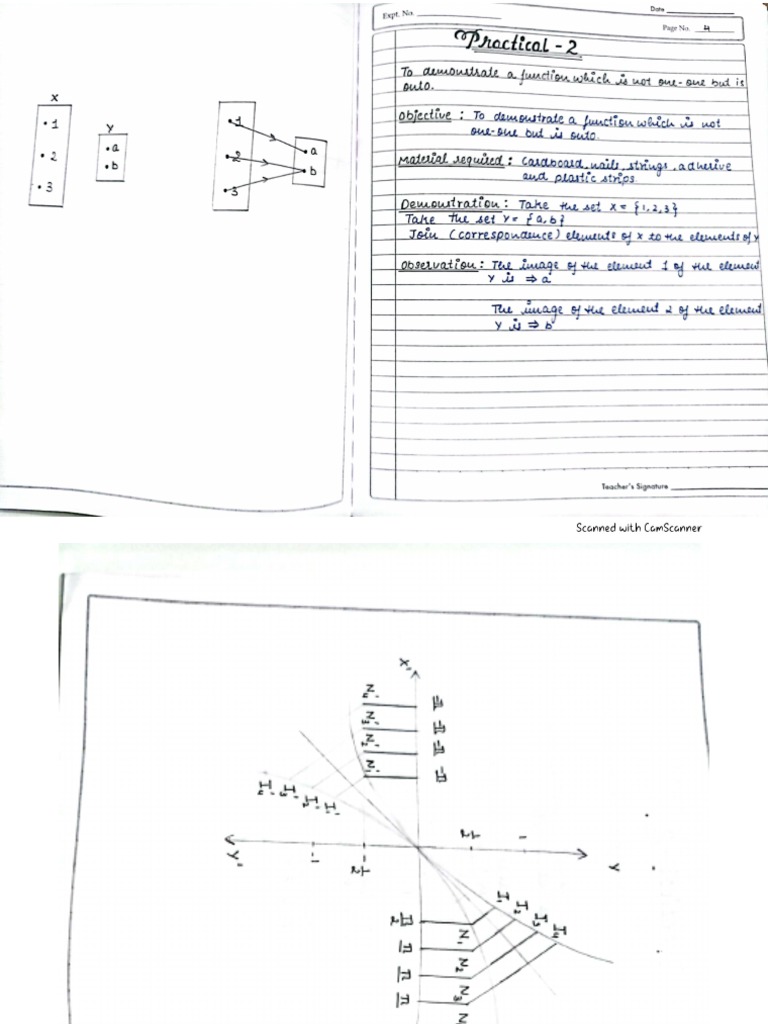 X
Y
1
2
3
a
b
1
2
3
a
b
Expt. No.
Date
Page No. 4
Practical - 2
To demonstrate a function which is not one-one but is
onto.
Objective : To demonstrate a function which is not
one-one but is onto.
Material required : Cardboard, nails, strings, adhesive
and plastic strips.
Demonstration : Take the set X = {1,2,3}
Take the set Y = {a,b}
Join (correspondence) elements of X to the elements of Y
Observation : The image of the element 1 of the element
Y is ⇒ a
The image of the element 2 of the element
Y is ⇒ b
Teacher's Signature
Scanned with CamScanner
X'
N4'
N3'
N2'
N1'
I4' I3' I2' I1'
Y'
-1
-1/2
1/2
1
Y
I1 I2 I3 I4
π/2
π
π
π
N1
N2
N3